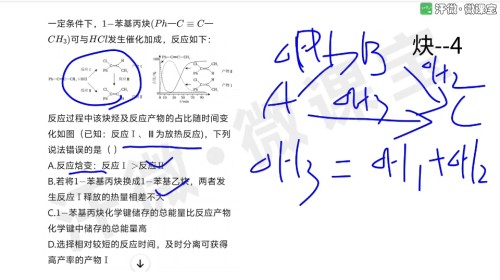 汗微·微课宝
一定条件下，1-苯基丙炔(Ph-C≡C-
CH₃)可与HCl发生催化加成，反应如下：
反应过程中该炔烃及反应产物的占比随时间变
化如图（已知：反应Ⅰ、Ⅲ为放热反应），下列
说法错误的是（ ）
A.反应焓变：反应Ⅰ>反应Ⅱ
B.若将1-苯基丙炔换成1-苯基乙炔，两者发
生反应Ⅰ释放的热量相差不大
C.1-苯基丙炔化学键储存的总能量比反应产物
化学键中储存的总能量高
D.选择相对较短的反应时间，及时分离可获得
高产率的产物Ⅰ
炔--4
ΔH₁ B
ΔH₂
A ΔH₃ C
ΔH₃ = ΔH₁+ΔH₂